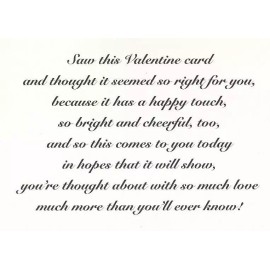 Saw this Valentine card
and thought it seemed so right for you,
because it has a happy touch,
so bright and cheerful, too,
and so this comes to you today
in hopes that it will show,
you're thought about with so much love
much more than you'll ever know!